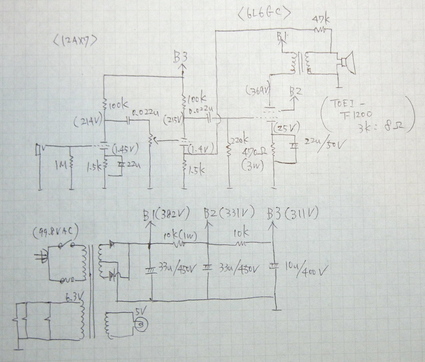 <12AX7>
<6L6GC>
B3
B1
47k
100k
100k
(214V)
0.022u
(215V)
0.022u
(364V)
B2
(TOEI-
F1200
3k:8Ω)
(1.45V)
(1.4V)
(25V)
1M
1.5k
22u
1.5k
220k
470Ω
(3W)
22u/50V
(99.8VAC)
B1(382V)
B2(331V)
B3(311V)
10k(1W)
10k
33u/450V
33u/450V
10u/400V
6.3V
5V